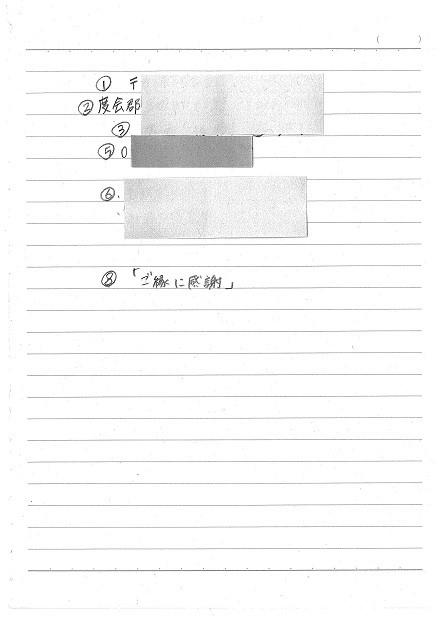 ( )
① 〒
② 度会郡
③
⑤ 0
⑥.
⑧ 「ご縁に感謝」